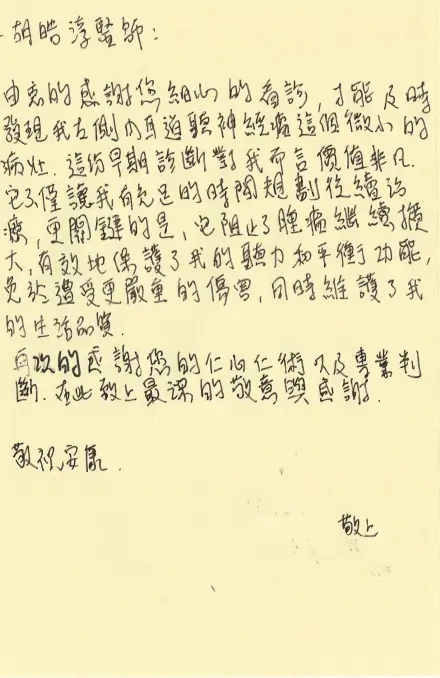 胡皓淳醫師：
由衷的感謝您細心的看診，才能及時
發現我左側內耳道聽神經瘤這個微小的
病灶．這份早期診斷對我而言價值非凡．
它不僅讓我有充足的時間規劃後續治
療，更關鍵的是，它阻止了腫瘤繼續擴
大，有效地保護了我的聽力和平衡功能，
免於遭受更嚴重的傷害，同時維護了我
的生活品質．
再次的感謝您的仁心仁術以及專業判
斷．在此致上最深的敬意與感謝．
敬祝安康．
敬上